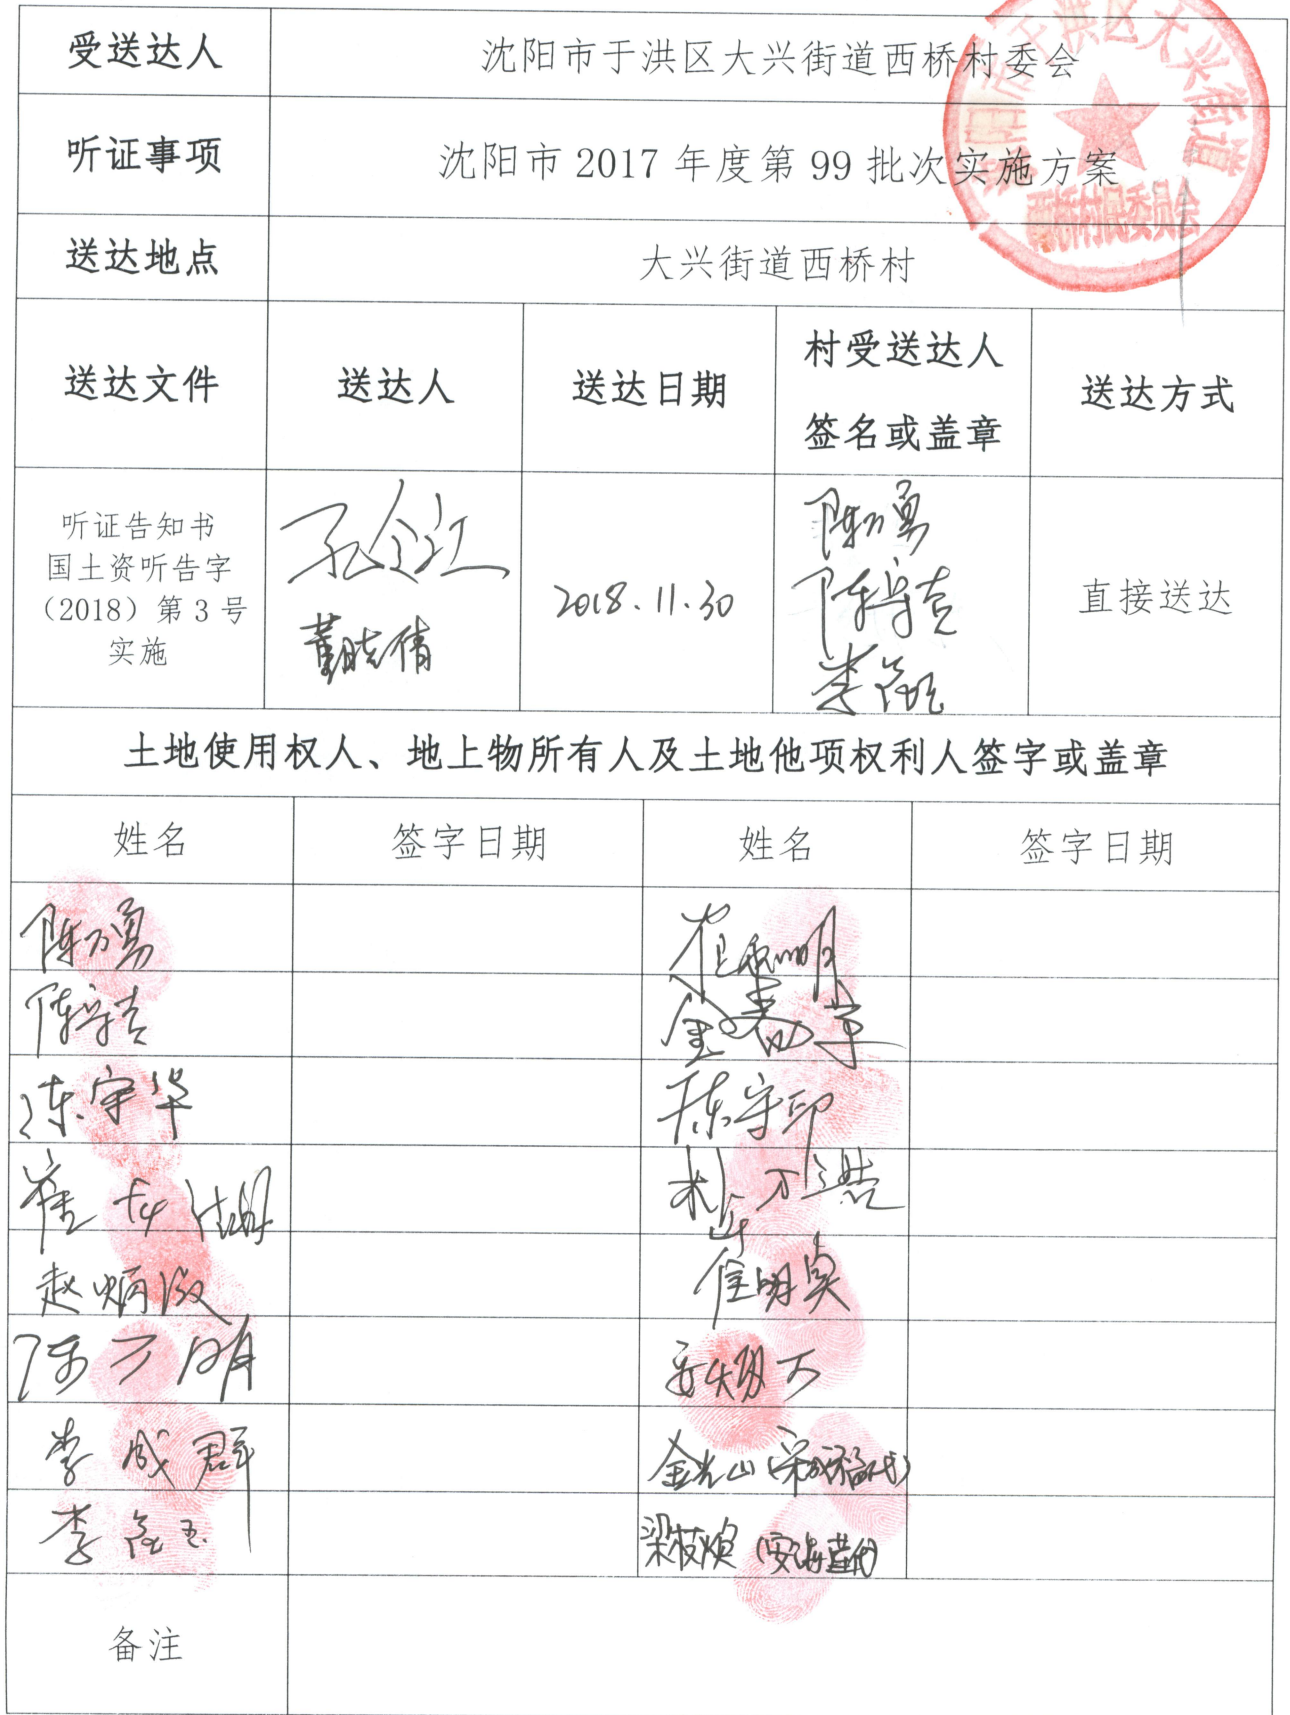 受送达人
沈阳市于洪区大兴街道西桥村委会
听证事项
沈阳市 2017 年度第 99 批次实施方案
送达地点
大兴街道西桥村
于洪区大兴街道
西桥村民委员会
送达文件
送达人
送达日期
村受送达人
签名或盖章
送达方式
听证告知书
国土资听告字
（2018）第 3 号
实施
孔令江
董晓倩
2018.11.30
陈万勇
陈守吉
直接送达
土地使用权人、地上物所有人及土地他项权利人签字或盖章
姓名
签字日期
姓名
签字日期
陈万勇
陈守吉
金春学
陈守华
陈守印
赵炳
崔明奂
陈万明
李成群
金光山（宋成福代）
李
备注